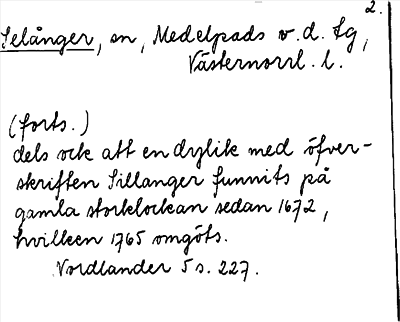 2.
Selånger, sn, Medelpads v. d. tg,
Västernorrl. l.
(forts.)
dels ock att en dylik med öfver-
skriften Sillanger funnits på
gamla storklockan sedan 1672,
hvilken 1765 omgöts.
Nordlander 5 s. 227.